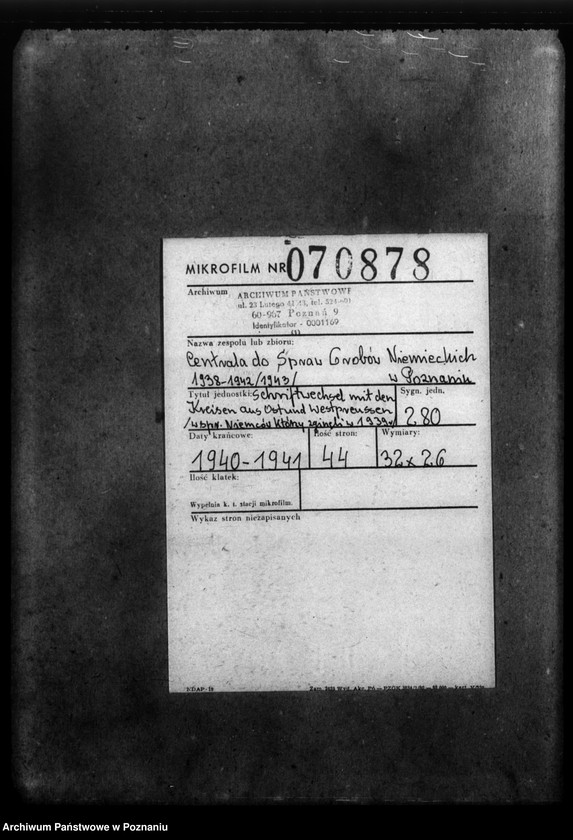 MIKROFILM NR 070878
Archiwum
ARCHIWUM PAŃSTWOWE
ul. 23 Lutego 41/43, tel.
60-967 Poznań 9
Identyfikator - 0001169
(1)
Nazwa zespołu lub zbioru:
Centrala do Spraw Grobów Niemieckich
1938-1942/1943/ w Poznaniu
Tytuł jednostki: Schriftwechsel mit den
Kreisen aus Ost und Westpreussen
/w spr. Niemców który zginęli w 1939r/
Sygn. jedn.
280
Daty krańcowe:
1940-1941
Ilość stron:
44
Wymiary:
32x26
Ilość klatek:
Wypełnia k. t. stacji mikrofilm.
Wykaz stron niezapisanych
NDAP-19
Archiwum Państwowe w Poznaniu